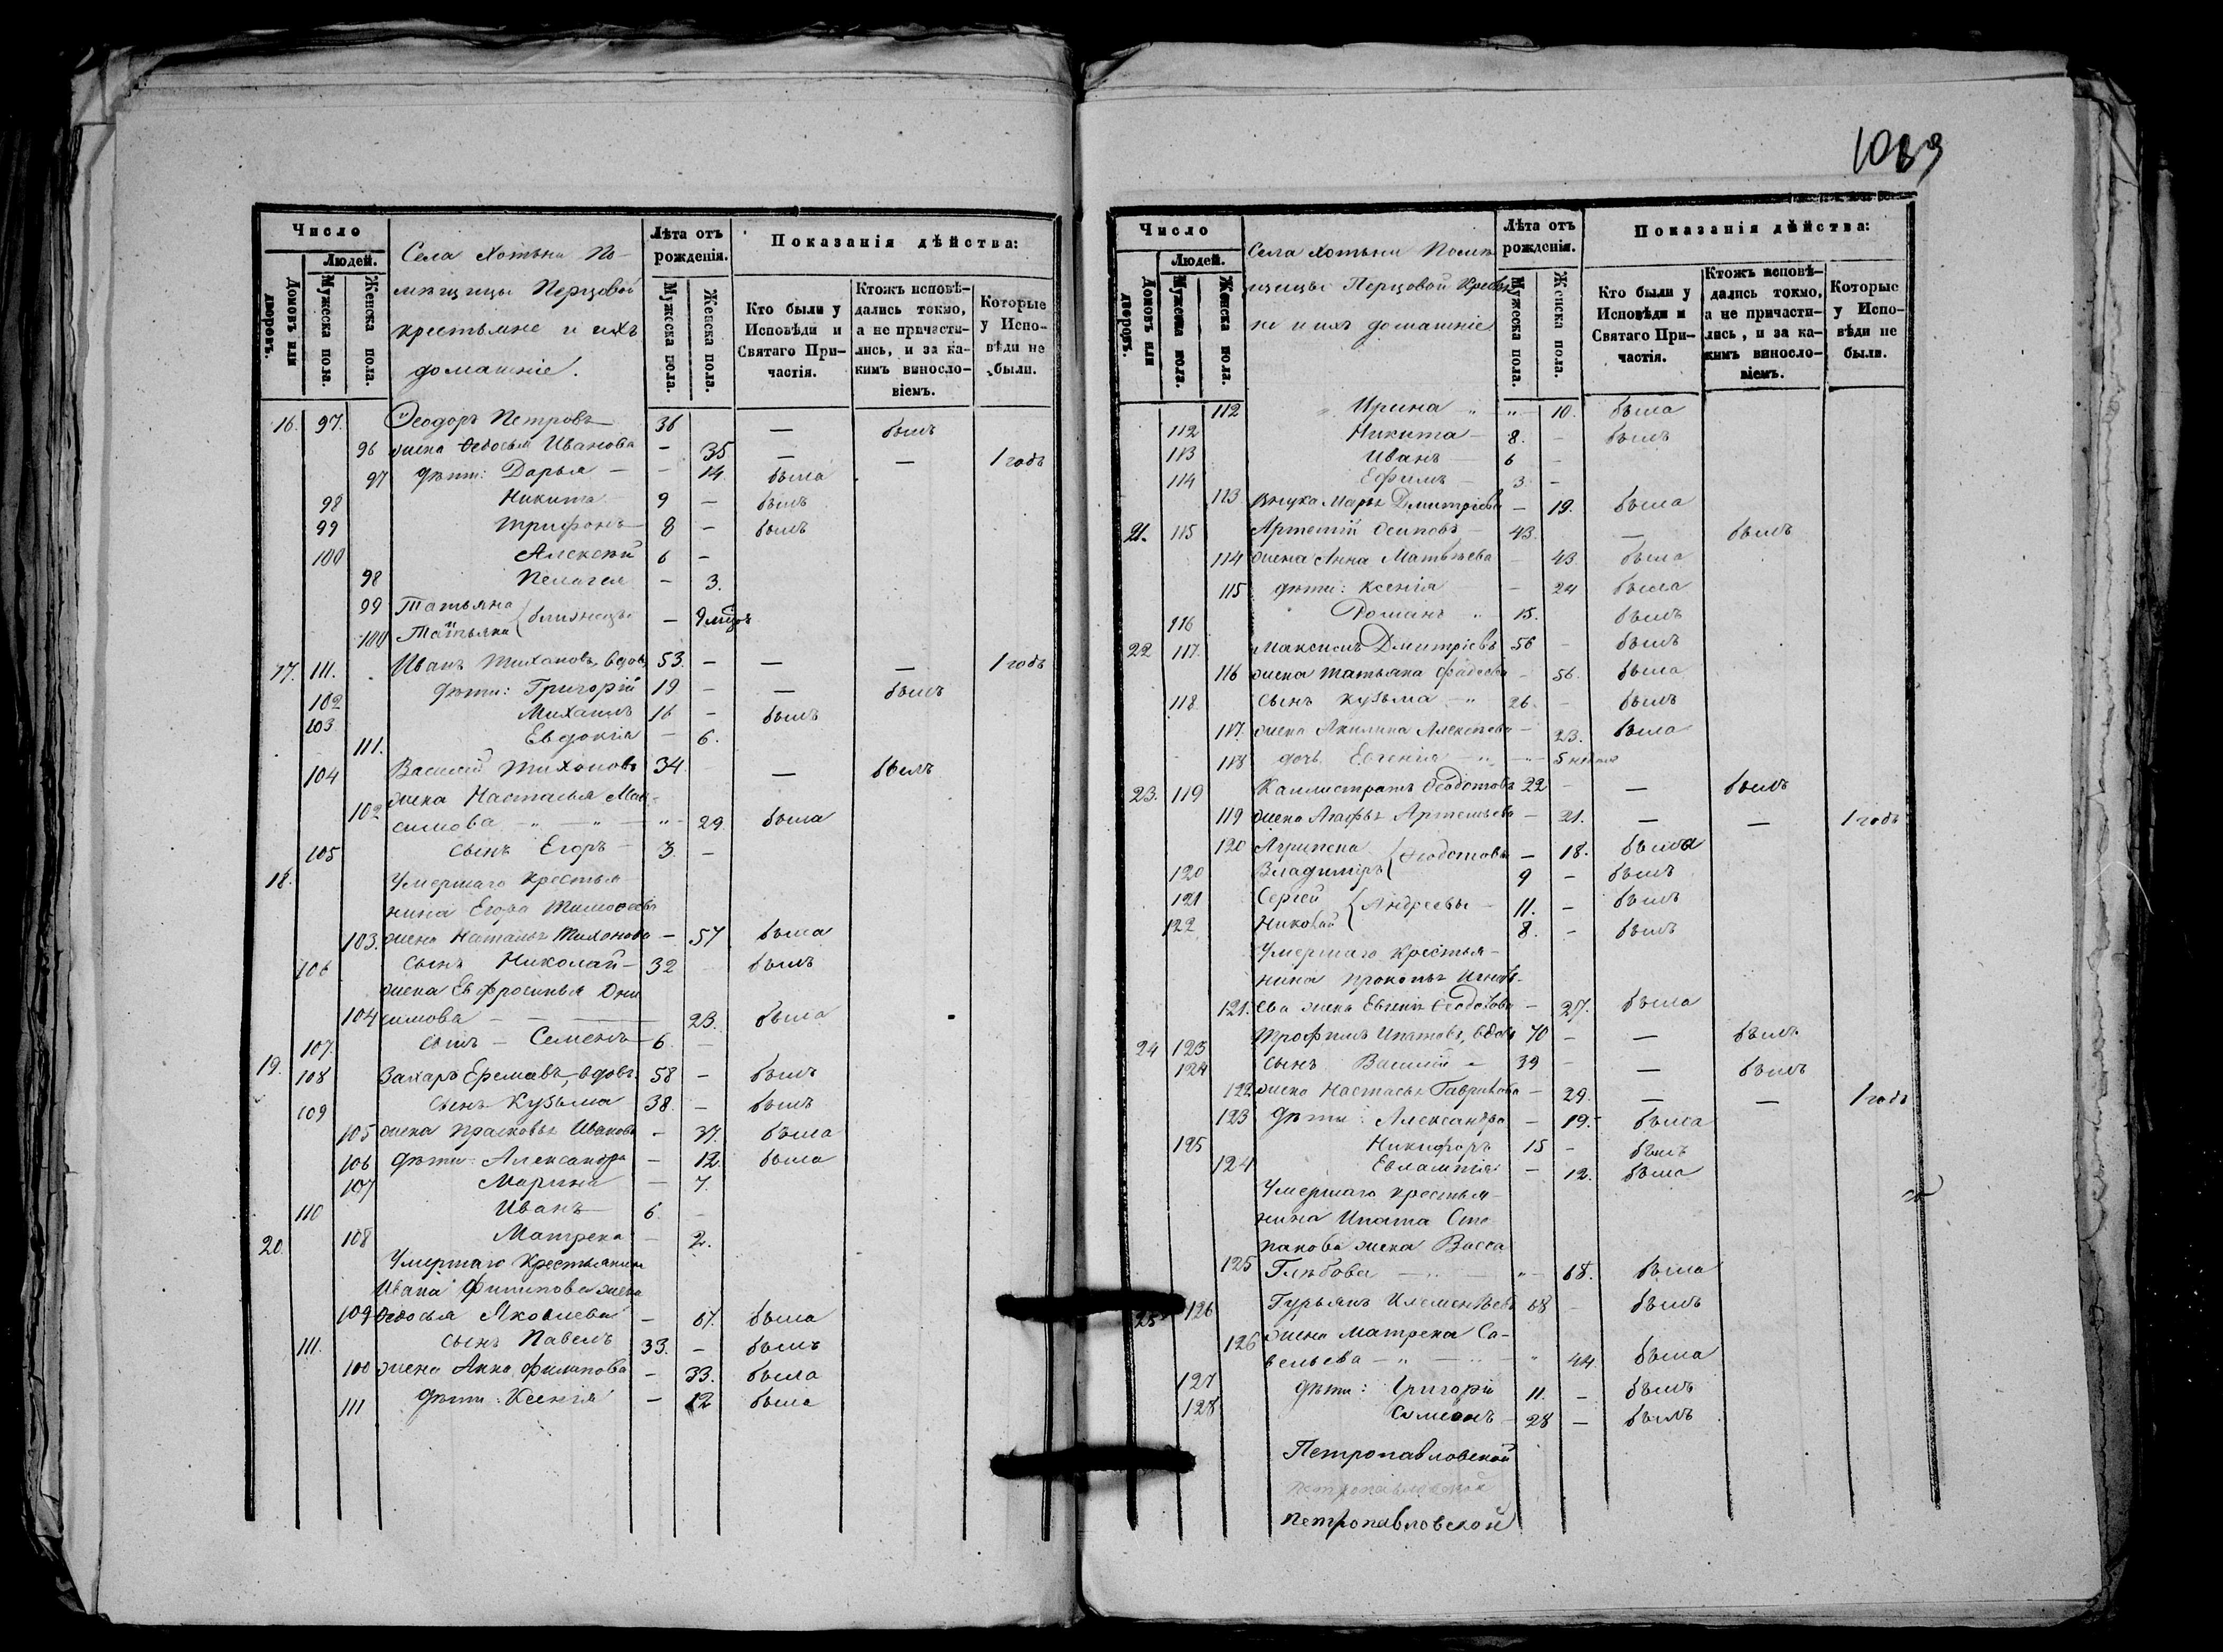 1039
Число
Людей.
Домовъ или дворовъ.
Мужеска пола.
Женска пола.
Села Хотьни По-
мѣщицы Перцовой
крестьяне и ихъ
домашніе.
Лѣта отъ рожденія.
Мужеска пола.
Женска пола.
Показанія дѣйства:
Кто были у Исповѣди и Святаго При-частія.
Ктожъ исповѣ-дались токмо, а не причасти-лись, и за ка-кимъ винословіемъ.
Которые у Испо-вѣди не были.
16. 97. Ѳеодоръ Петровъ 36 — былъ
96 жена Ѳедосья Иванова — 35 — — 1 годъ
97 дѣти: Дарья — — 14 была
98 Никита 9 — былъ
99 Трифонъ 8 — былъ
100 Алексѣй 6 —
98 Пелагея — 3.
99 Татьяна
близнецы — 9 мѣсяц
100 Татьяна
17. 111. Иванъ Тихановъ, вдовъ 53. — — — 1 годъ
102 дѣти: Григорій 19 — — былъ
103 Михаилъ 16 — былъ
111. Евдокія — 6.
104 Василій Тихоновъ 34 — былъ
жена Настасья Мак-
102 симова — " — " — " 29 была
105 сынъ Егоръ — 3. —
18. Умершаго крестья-
нина Егора Тимоѳеева
103. жена Наталья Тихонова — 57 была
106 сынъ Николай — 32 былъ
жена Евфросинья Они
104 симова — — 23. была
107. сынъ — Семенъ — 6 —
19. 108 Захаръ Еремѣевъ, вдовъ. 58 — былъ
109 сынъ Кузьма 38. — былъ
105 жена Прасковья Иванова — 37. была
106 дѣти: Александра — 12. была
107 Марина — 7.
110 Иванъ 6. —
20. 108 Матрена — 2.
Умершаго Крестьянина
Ивана Филипова жена
109 Ѳедосья Яковлева — 67. была
111. сынъ Павелъ 33. — былъ
100 жена Анна Филипова — 33. была
111 дѣти: Ксенія — 12 была
Число
Людей.
Домовъ или дворовъ.
Мужеска пола.
Женска пола.
Села Хотьни Помѣ-
щицы Перцовой Крестья
не и ихъ домашніе
Лѣта отъ рожденія.
Мужеска пола.
Женска пола.
Показанія дѣйства:
Кто были у Исповѣди и Святаго При-частія.
Ктожъ исповѣ-дались токмо, а не причасти-лись, и за ка-кимъ винословіемъ.
Которые у Испо-вѣди не были.
112 " Ирина — " " 10. была
112 Никита — 8. — былъ
113 Иванъ 6 —
114 Ефимъ — 3. —
113. внука Марья Дмитріева — 19. была
21. 115 Артемій Осиповъ — 43. — былъ
114 жена Анна Матвѣева — 43. была
115 дѣти: Ксенія — 24 была
116 Романъ — " 15. былъ
22 117. Максимъ Дмитріевъ 56 — былъ
116 жена Татьяна Фадеева — 56. была
118 сынъ Кузьма — " 26. — былъ
117. жена Акилина Алексѣева — 23. была
118 дочь Евгенія — " — 5 недѣль
23. 119 Каллистратъ Ѳеодотовъ 22 — — былъ
119 жена Агафья Артемьева — 21. — — 1 годъ
120 Агрипена
Ѳеодотовы — 18. была
120 Владиміръ 9 — былъ
121 Сергѣй
Андреевы 11. — былъ
122 Николай 8. — былъ
Умершаго крестья-
нина Прокопья Игнать-
121. ева жена Евгенія Ѳеодотова — 27. была
24 123 Трофимъ Ипатовъ, вдовъ 70 — — былъ
124 сынъ Василій " 39 — — былъ
122 жена Настасья Гаврилова — 29. — — 1 годъ
123 дѣти: Александра — 19. — была
125 Никифоръ 15 — былъ
124 Евлампія — 12. была
Умершаго крестья-
нина Ипата Сте
панова жена Васса
125 Глѣбова — " — " — 68. была
25 126 Гурьянъ Клементьевъ 68 — былъ
126 жена Матрена Са-
вельева — " — " — " 44. была
127 дѣти: Григорій 11. — былъ
128 Симеонъ — 28 — былъ
Петропавловской
петропавловской
петропавловской